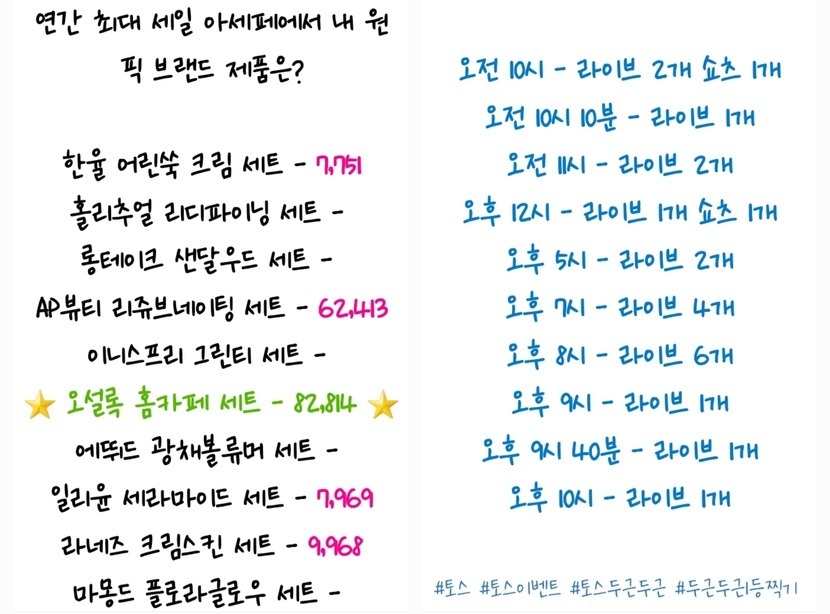 연간 최대 세일 아세페에서 내 원
픽 브랜드 제품은?
한율 어린쑥 크림 세트 - 7,751
홀리추얼 리디파이닝 세트 -
롱테이크 샌달우드 세트 -
AP뷰티 리쥬브네이팅 세트 - 62,413
이니스프리 그린티 세트 -
⭐ 오설록 홈카페 세트 - 82,814 ⭐
에뛰드 광채볼류머 세트 -
일리윤 세라마이드 세트 - 7,969
라네즈 크림스킨 세트 - 9,968
마몽드 플로라글로우 세트 -
오전 10시 - 라이브 2개 쇼츠 1개
오전 10시 10분 - 라이브 1개
오전 11시 - 라이브 2개
오후 12시 - 라이브 1개 쇼츠 1개
오후 5시 - 라이브 2개
오후 7시 - 라이브 4개
오후 8시 - 라이브 6개
오후 9시 - 라이브 1개
오후 9시 40분 - 라이브 1개
오후 10시 - 라이브 1개
#토스 #토스이벤트 #토스두근두근 #두근두근1등찍기